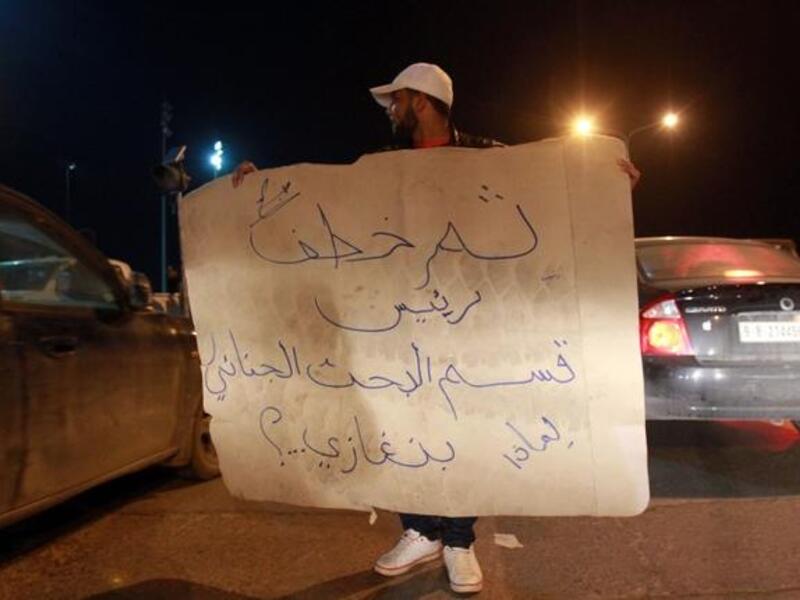 ثم خطف
رئيس
قسم البحث الجنائي
لماذا بنغازي..؟